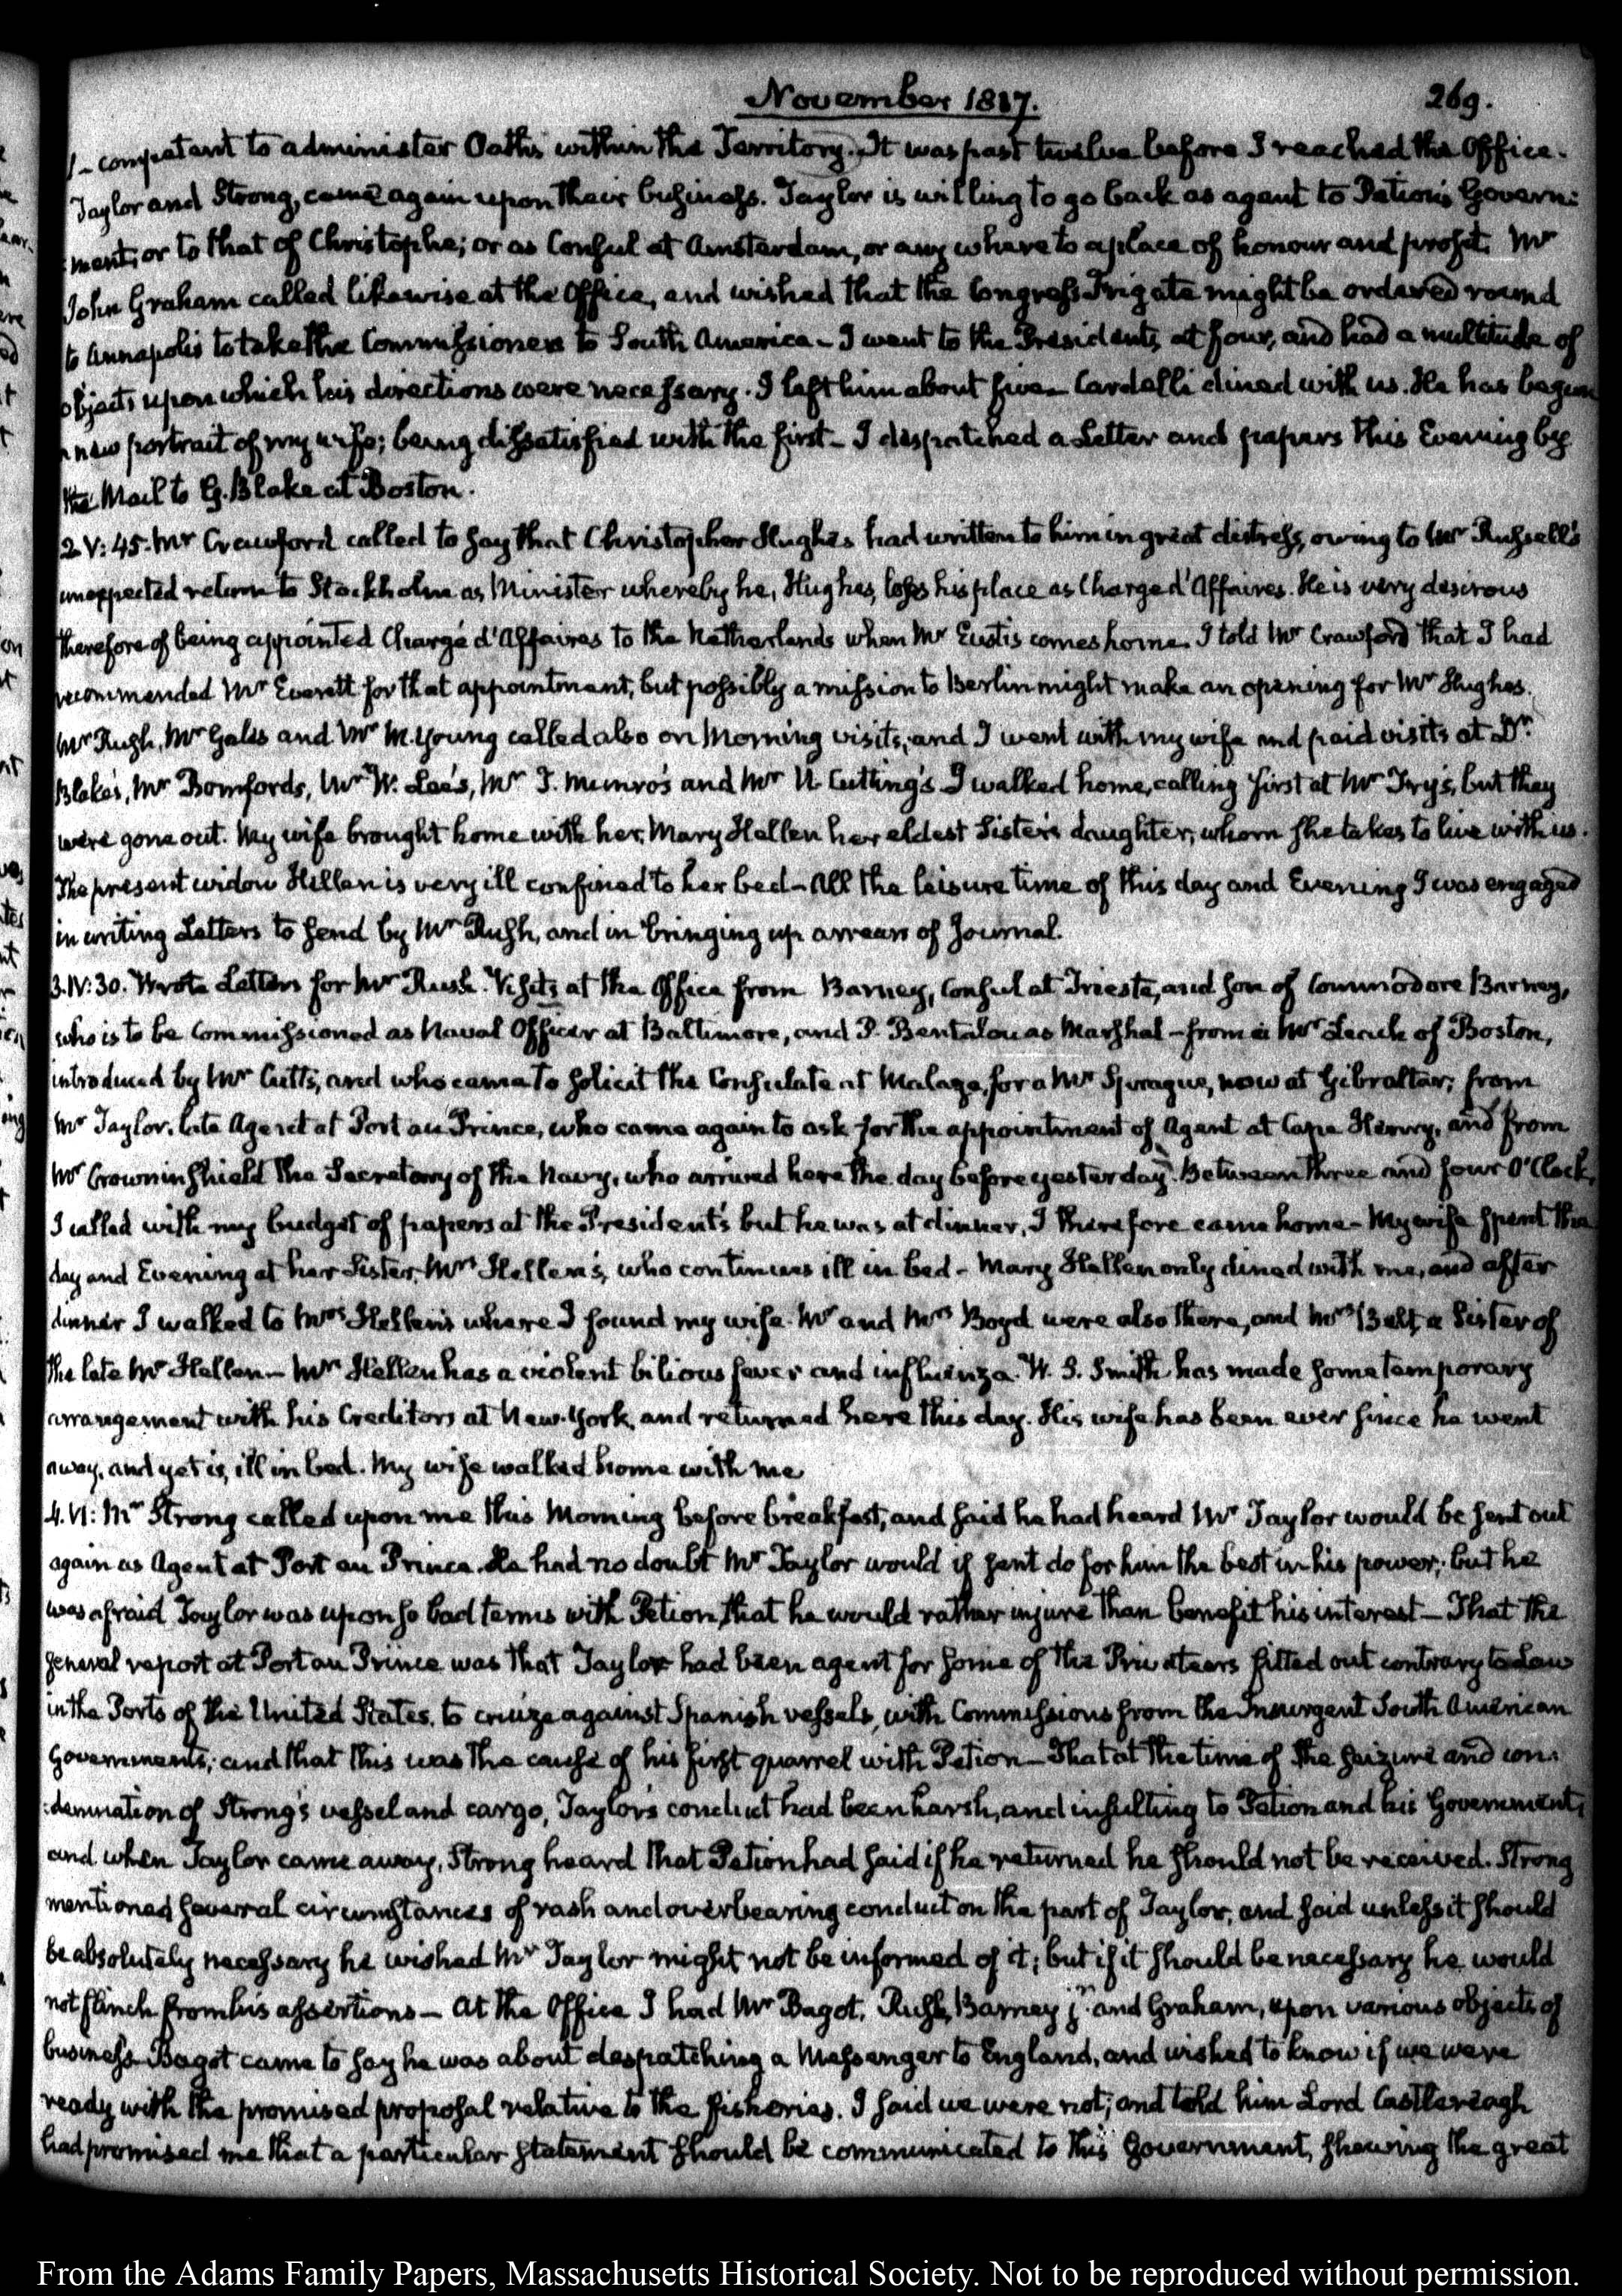 November 1817.
269.
1 - competent to administer Oaths within the Territory. It was past twelve before I reached the Office.
Taylor and Strong, came again upon their business. Taylor is willing to go back as agent to Petion's Govern:
:ment, or to that of Christophe; or as Consul at Amsterdam, or any where to a place of honour and profit. Mr
John Graham called likewise at the Office, and wished that the Congress Frigate might be ordered round
to Annapolis to take the Commissioners to South America - I went to the President's at four, and had a multitude of
objects upon which his directions were necessary. I left him about five - Cardelli dined with us. He has begun
a new portrait of my wife; being dissatisfied with the first - I despatched a Letter and papers this Evening by
the Mail to G. Blake at Boston.
2. V: 45. Mr Crawford called to say that Christopher Hughes had written to him in great distress, owing to Mr Russell's
unexpected return to Stockholm as Minister whereby he, Hughes, loses his place as Chargé d'Affaires. He is very desirous
therefore of being appointed Chargé d'Affaires to the Netherlands when Mr Eustis comes home. I told Mr Crawford that I had
recommended Mr Everett for that appointment, but possibly a mission to Berlin might make an opening for Mr Hughes.
Mr Rush, Mr Gales and Mr M. Young called also on Morning visits, and I went with my wife and paid visits at Dr.
Blake's, Mr Bomfords, Mr W. Lee's, Mr T. Munro's and Mr N. Cutting's. I walked home, calling first at Mr Frye's, but they
were gone out. My wife brought home with her, Mary Hellen her eldest Sister's daughter, whom she takes to live with us.
The present widow Hellen is very ill confined to her bed - All the leisure time of this day and Evening I was engaged
in writing Letters to send by Mr Rush, and in bringing up arrears of Journal.
3. IV: 30. Wrote Letters for Mr Rush. Visits at the Office from Barney, Consul at Trieste, and son of Commodore Barney,
who is to be Commissioned as Naval Officer at Baltimore, and P. Bentalou as Marshal - from a Mr Leach of Boston,
introduced by Mr Cutts, and who came to solicit the Consulate at Malaga, for a Mr Sprague, now at Gibraltar; from
Mr Taylor, late Agent at Port au Prince, who came again to ask for the appointment of Agent at Cape Henry, and from
Mr Crowninshield the Secretary of the Navy, who arrived here the day before yesterday. Between three and four O'Clock,
I called with my budget of papers at the President's but he was at dinner, I therefore came home - My wife spent the
day and Evening at her Sister, Mrs Hellen's, who continues ill in bed - Mary Hellen only dined with me, and after
dinner I walked to Mrs Hellen's where I found my wife. Mr and Mrs Boyd were also there, and Mrs Belt, a Sister of
the late Mr Hellen - Mrs Hellen has a violent bilious fever and influenza. W. S. Smith has made some temporary
arrangement with his Creditors at New-York, and returned here this day. His wife has been ever since he went
away, and yet is, ill in bed. My wife walked home with me
4. VI: Mr Strong called upon me this Morning before breakfast, and said he had heard Mr Taylor would be sent out
again as Agent at Port au Prince. He had no doubt Mr Taylor would if sent do for him the best in his power; but he
was afraid Taylor was upon so bad terms with Petion, that he would rather injure than benefit his interest - That the
general report at Port au Prince was that Taylor had been agent for some of the Privateers fitted out contrary to Law
in the Ports of the United States, to cruize against Spanish vessels, with Commissions from the Insurgent South American
Governments; and that this was the cause of his first quarrel with Petion - That at the time of the seizure and con:
:demnation of Strong's vessel and cargo, Taylor's conduct had been harsh, and insulting to Petion and his Government,
and when Taylor came away, Strong heard that Petion had said if he returned he should not be received. Strong
mentioned several circumstances of rash and overbearing conduct on the part of Taylor, and said unless it should
be absolutely necessary he wished Mr Taylor might not be informed of it; but if it should be necessary he would
not flinch from his assertions - At the Office I had Mr Bagot, Rush, Barney jr. and Graham, upon various objects of
business. Bagot came to say he was about despatching a Messenger to England, and wished to know if we were
ready with the promised proposal relative to the fisheries. I said we were not; and told him Lord Castlereagh
had promised me that a particular statement should be communicated to this Government, shewing the great
From the Adams Family Papers, Massachusetts Historical Society. Not to be reproduced without permission.